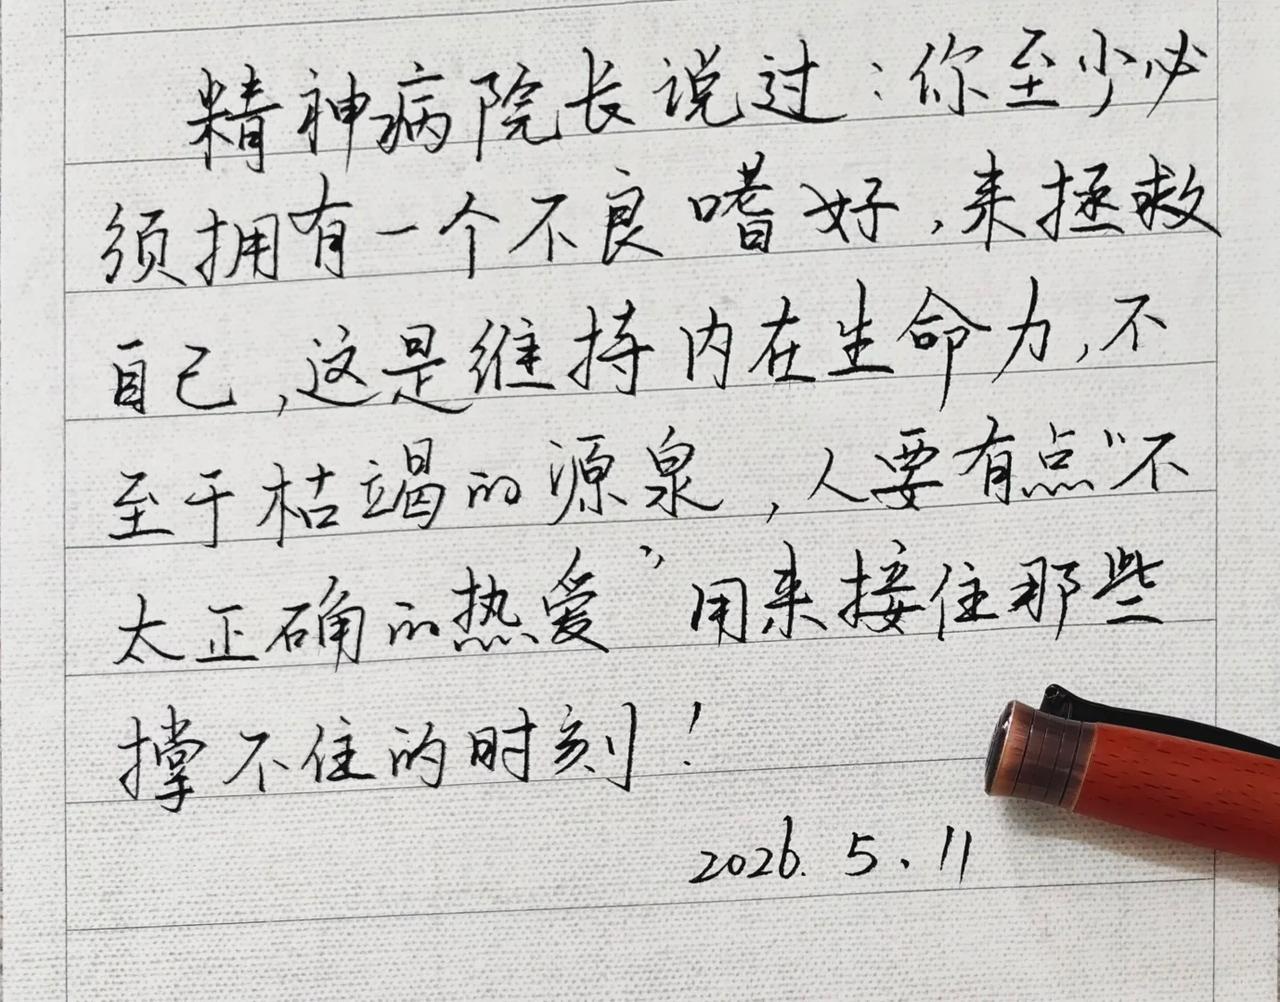 精神病院长说过：你至少必
须拥有一个不良嗜好，来拯救
自己，这是维持内在生命力，不
至于枯竭的源泉，人要有点“不
太正确的热爱”用来接住那些
撑不住的时刻！
2026.5.11